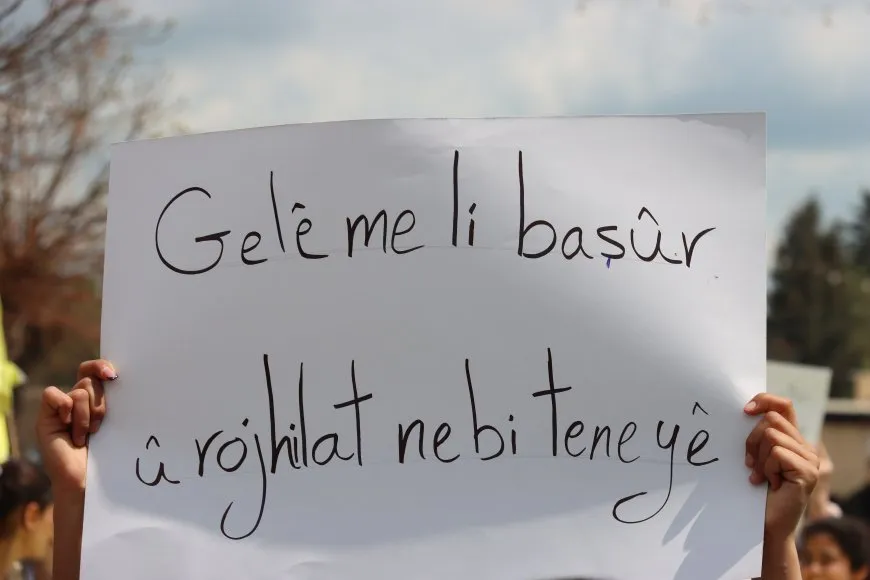 Gelê me li başûr
û rojhilat nebi teneyê